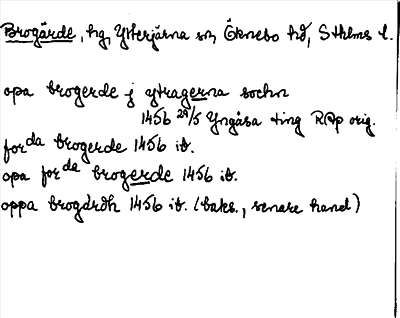 Brogärde, hg, Ytterjärna sn, Öknebo hd, Sthlms l.
opa brogerde j ytragerna sochn
1456 29/5 Yngåsa ting RAp orig.
forda brogerde 1456 ib.
opa forda brogerde 1456 ib.
oppa brogårdh 1456 ib. (baks., senare hand)